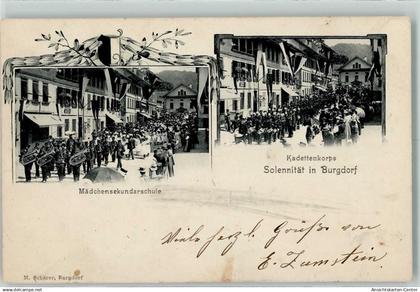 Kadettenkorps
Solennität in Burgdorf
Mädchensekundarschule
Viele herzl. Grüße von
E. Zumstein
M. Schärer, Burgdorf
Ansichtskarten-Center.de